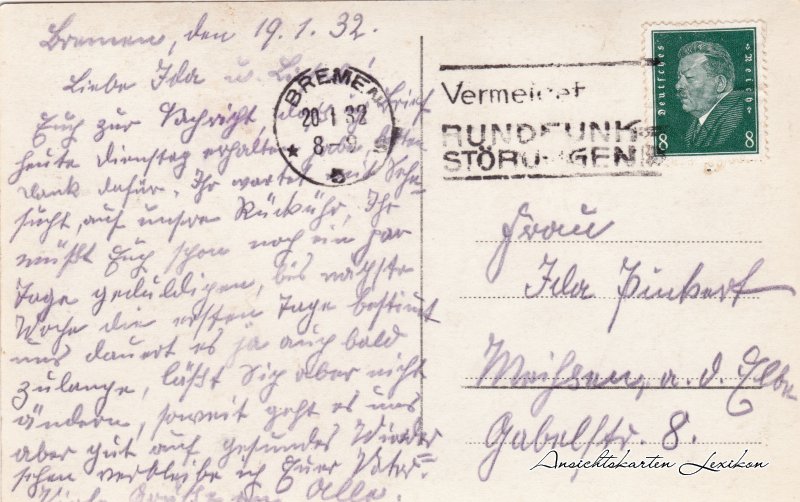 Bremen, den 19.1.32.
Liebe Ida u.
Euch zur Nachricht das Brief
heute dienstag erhalten besten
dank dafür. Ihr wartet mit Sehn-
sucht, auf unsre Rückkühr, Ihr
müßt Euch schon noch ein par
Tage geduldigen, bis nägste
Woche die ersten Tage bestimt
uns dauert es ja auch bald
zulange, läßt Sich aber nicht
ändern, soweit geht es uns
aber gut auf gesundes Wieder
sehen verbleibe ich Euer Vater.
Viele Grüße an Alle.
BREMEN
20.1.32
8-9
★ 5
Vermeidet
RUNDFUNK
STÖRUNGEN
Deutsches Reich
8 8
Frau
Ida Pinkert
Meißen, a. d. Elbe
Gabelstr. 8.
Ansichtskarten Lexikon